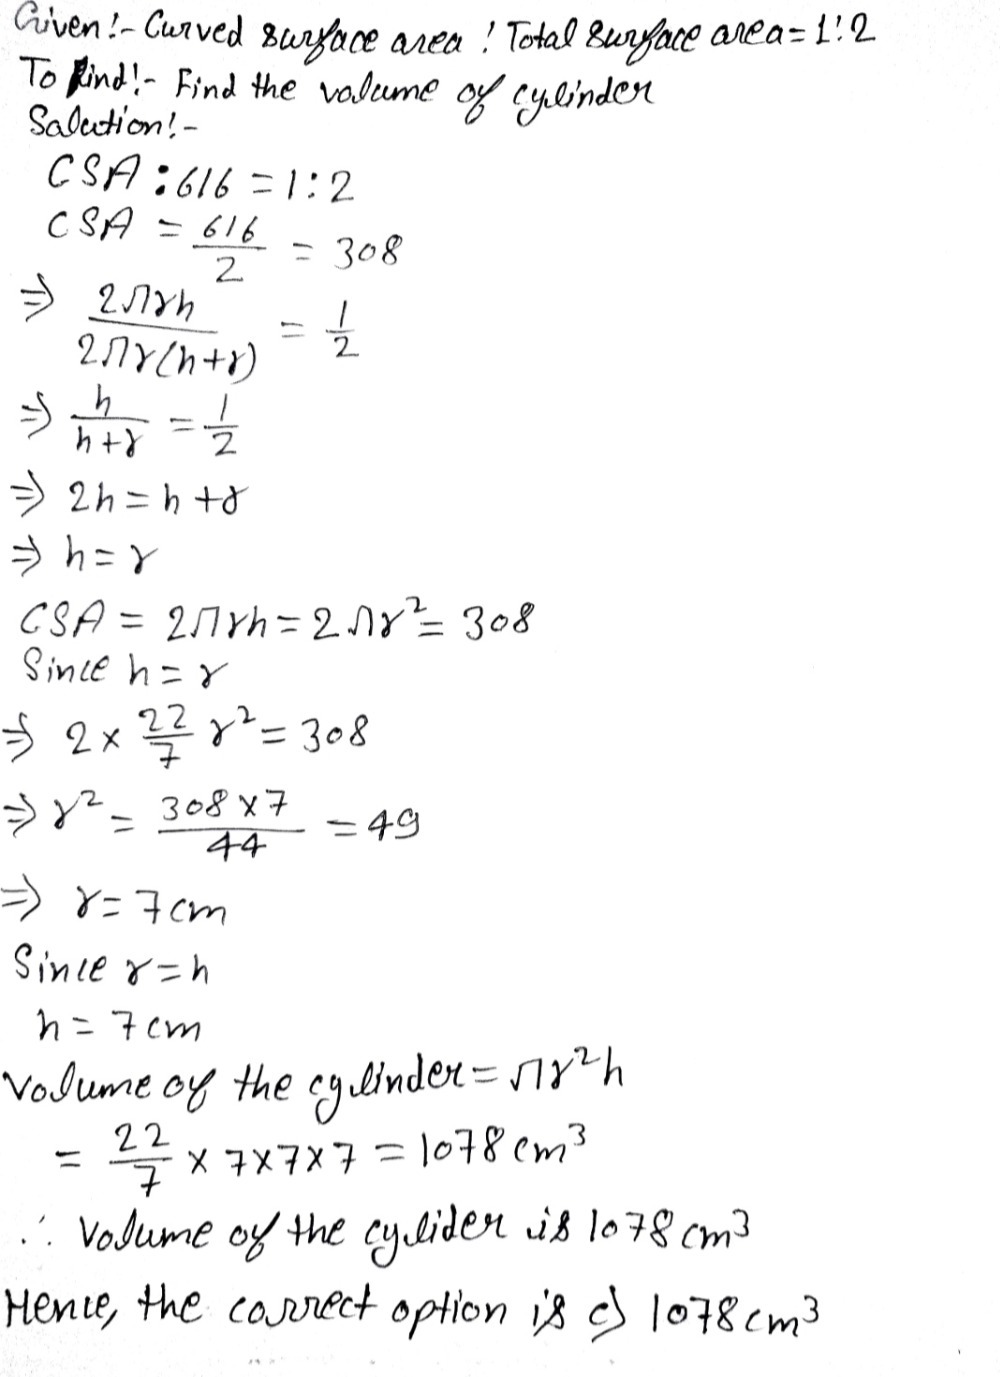 Given:- Curved surface area : Total surface area = 1:2
To Find:- Find the volume of cylinder
Solution:-
CSA : 616 = 1:2
CSA = 616/2 = 308
⇒ 2πrh / 2πr(h+r) = 1/2
⇒ h/h+r = 1/2
⇒ 2h = h + r
⇒ h = r
CSA = 2πrh = 2πr² = 308
Since h = r
⇒ 2 × 22/7 r² = 308
⇒ r² = 308×7/44 = 49
⇒ r = 7cm
Since r = h
h = 7cm
Volume of the cylinder = πr²h
= 22/7 × 7×7×7 = 1078 cm³
∴ Volume of the cylider is 1078 cm³
Hence, the correct option is c) 1078 cm³